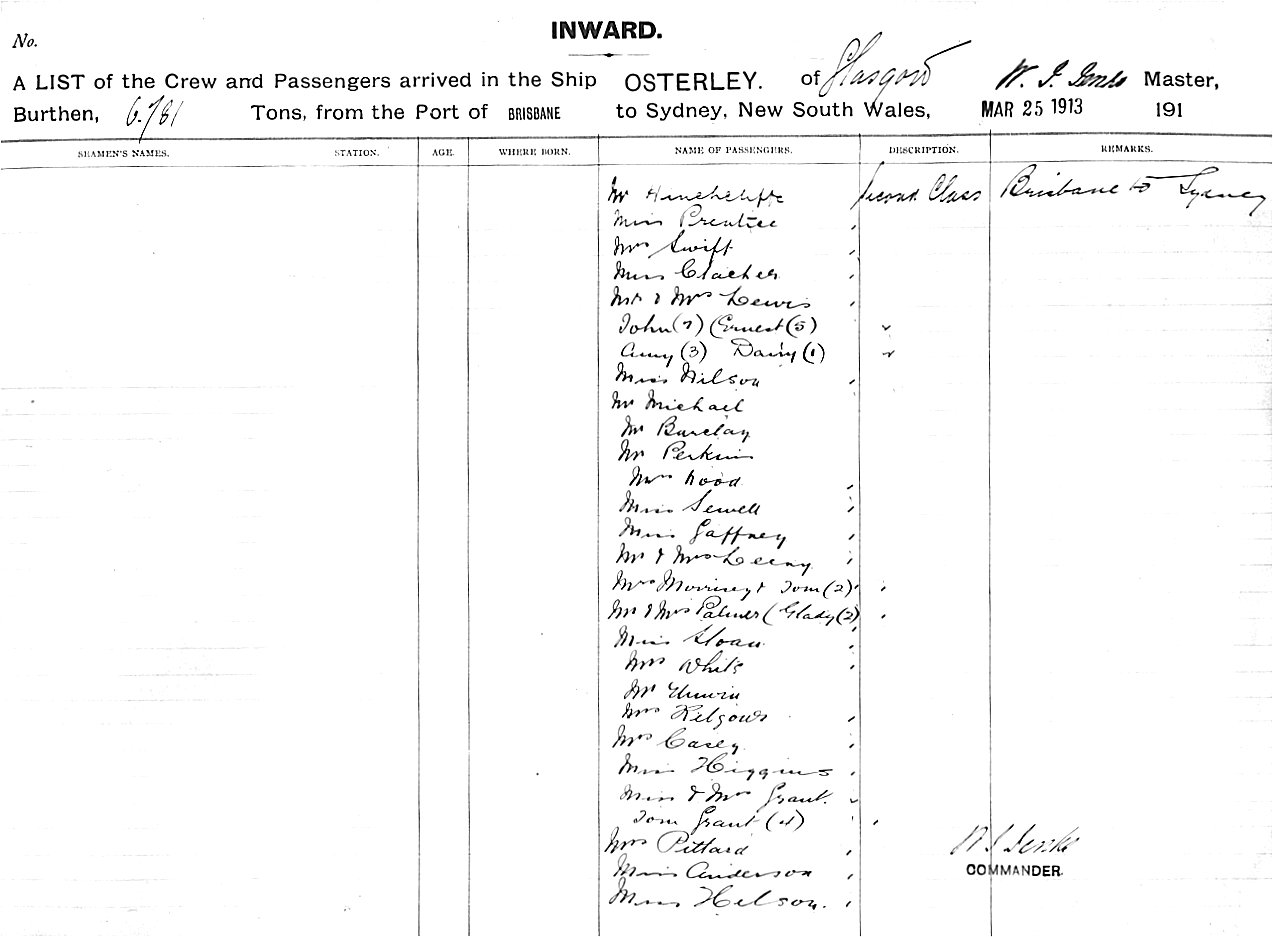 INWARD.
No.
A LIST of the Crew and Passengers arrived in the Ship OSTERLEY. of Glasgow W. S. Jenks Master,
Burthen, 6781 Tons, from the Port of BRISBANE to Sydney, New South Wales, MAR 25 1913 191
SEAMEN'S NAMES. STATION. AGE. WHERE BORN. NAME OF PASSENGERS. DESCRIPTION. REMARKS.
Mr Hinchcliffe Second Class Brisbane to Sydney
Miss Prentice
Mrs Swift
Miss Clacher
Mr & Mrs Lewis
John (7) (Ernest (5)
Amy (3) Daisy (1)
Miss Wilson
Mr Michael
Mr Barclay
Mr Perkins
Mrs Wood
Miss Sewell
Miss Gaffney
Mr & Mrs
Mrs Morrisey & Tom (2)
Mr & Mrs Palmer (Glady (2)
Miss Sloan
Mrs White
Mr Unwin
Mrs Kilgour
Mrs Casey
Miss Higgins
Miss & Mrs Grant.
Tom Grant (4)
Mrs Pittard
Miss Anderson
Miss Nelson.
W S Jenks
COMMANDER.